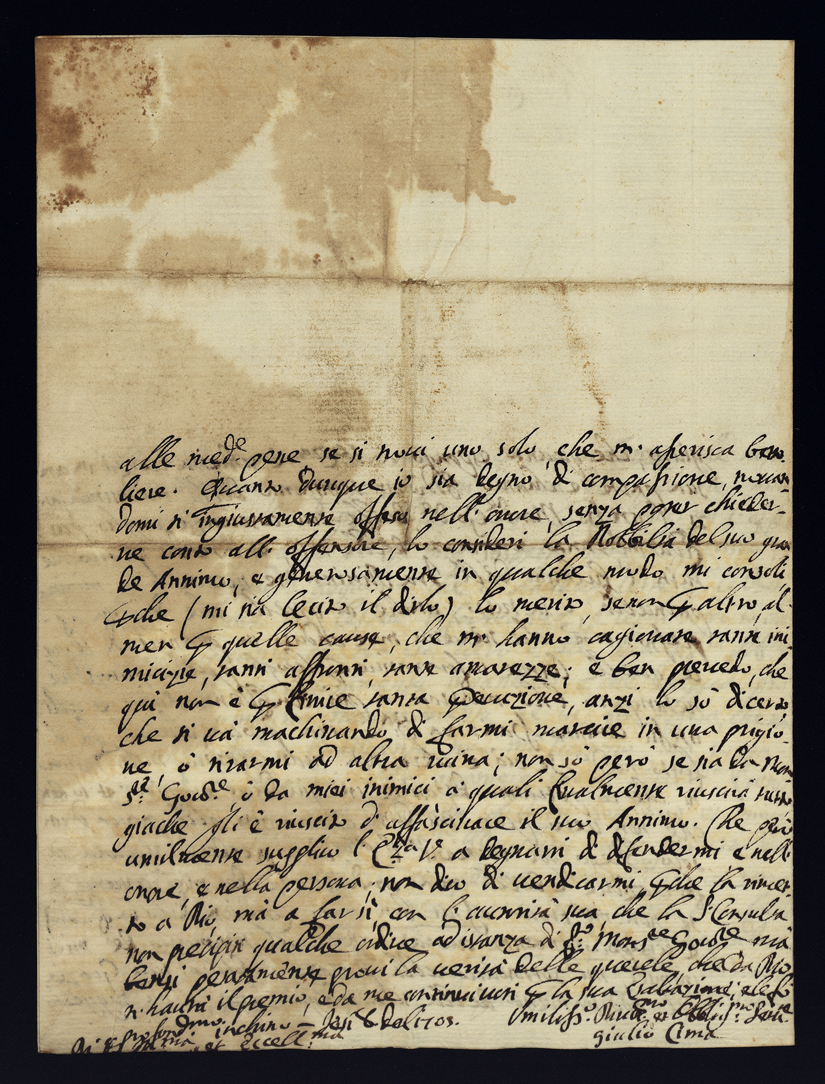 alle med.e pene se si trovi uno solo, che m' asserisca
liere. Quanto dunque io sia degno di compassione, trovan
domi sì ingiustamente offeso nell'onore, senza poter chieder-
ne conto all'offensore, lo consideri la Nobiltà del suo gran
de Annimo, e generosamente in qualche modo mi consoli
che (mi sia lecito il dirlo) lo merito, se non altro, al-
men quelle cause, che m' hanno cagionate tante ini
micizie, tanti affronti, tante amarezze; e ben prevedo, che
qui non è finire tanta, anzi lo sò di certo
che si và machinando di farmi marcire in una prigio-
ne, ò tirarmi ad altra ruina; non sò però se sia da Mon
s.re Gov.re ò da miei inimici a quali riuscirà tutto
giache gli è riuscito d'affascinare il suo Annimo. Che però
umilmente supplico l' a degnarsi di difendermi e nell'
onore, e nella persona, non dico di vendicarmi, la rimet-
to a Dio, mà a far sì, con l'autorità sua che la S. Consulta
non qualche ordine ad istanza di Mons.re Gov.re mà
bensì prima la verità delle querele, che da Dio
n'haurà il premio, e da me continui voti la sua; e le fò
profond.mo inchino Jesi 8 1703.
et Eccell.ma
Umiliss.o et Obblig.mo Serv.e
Giulio Cima